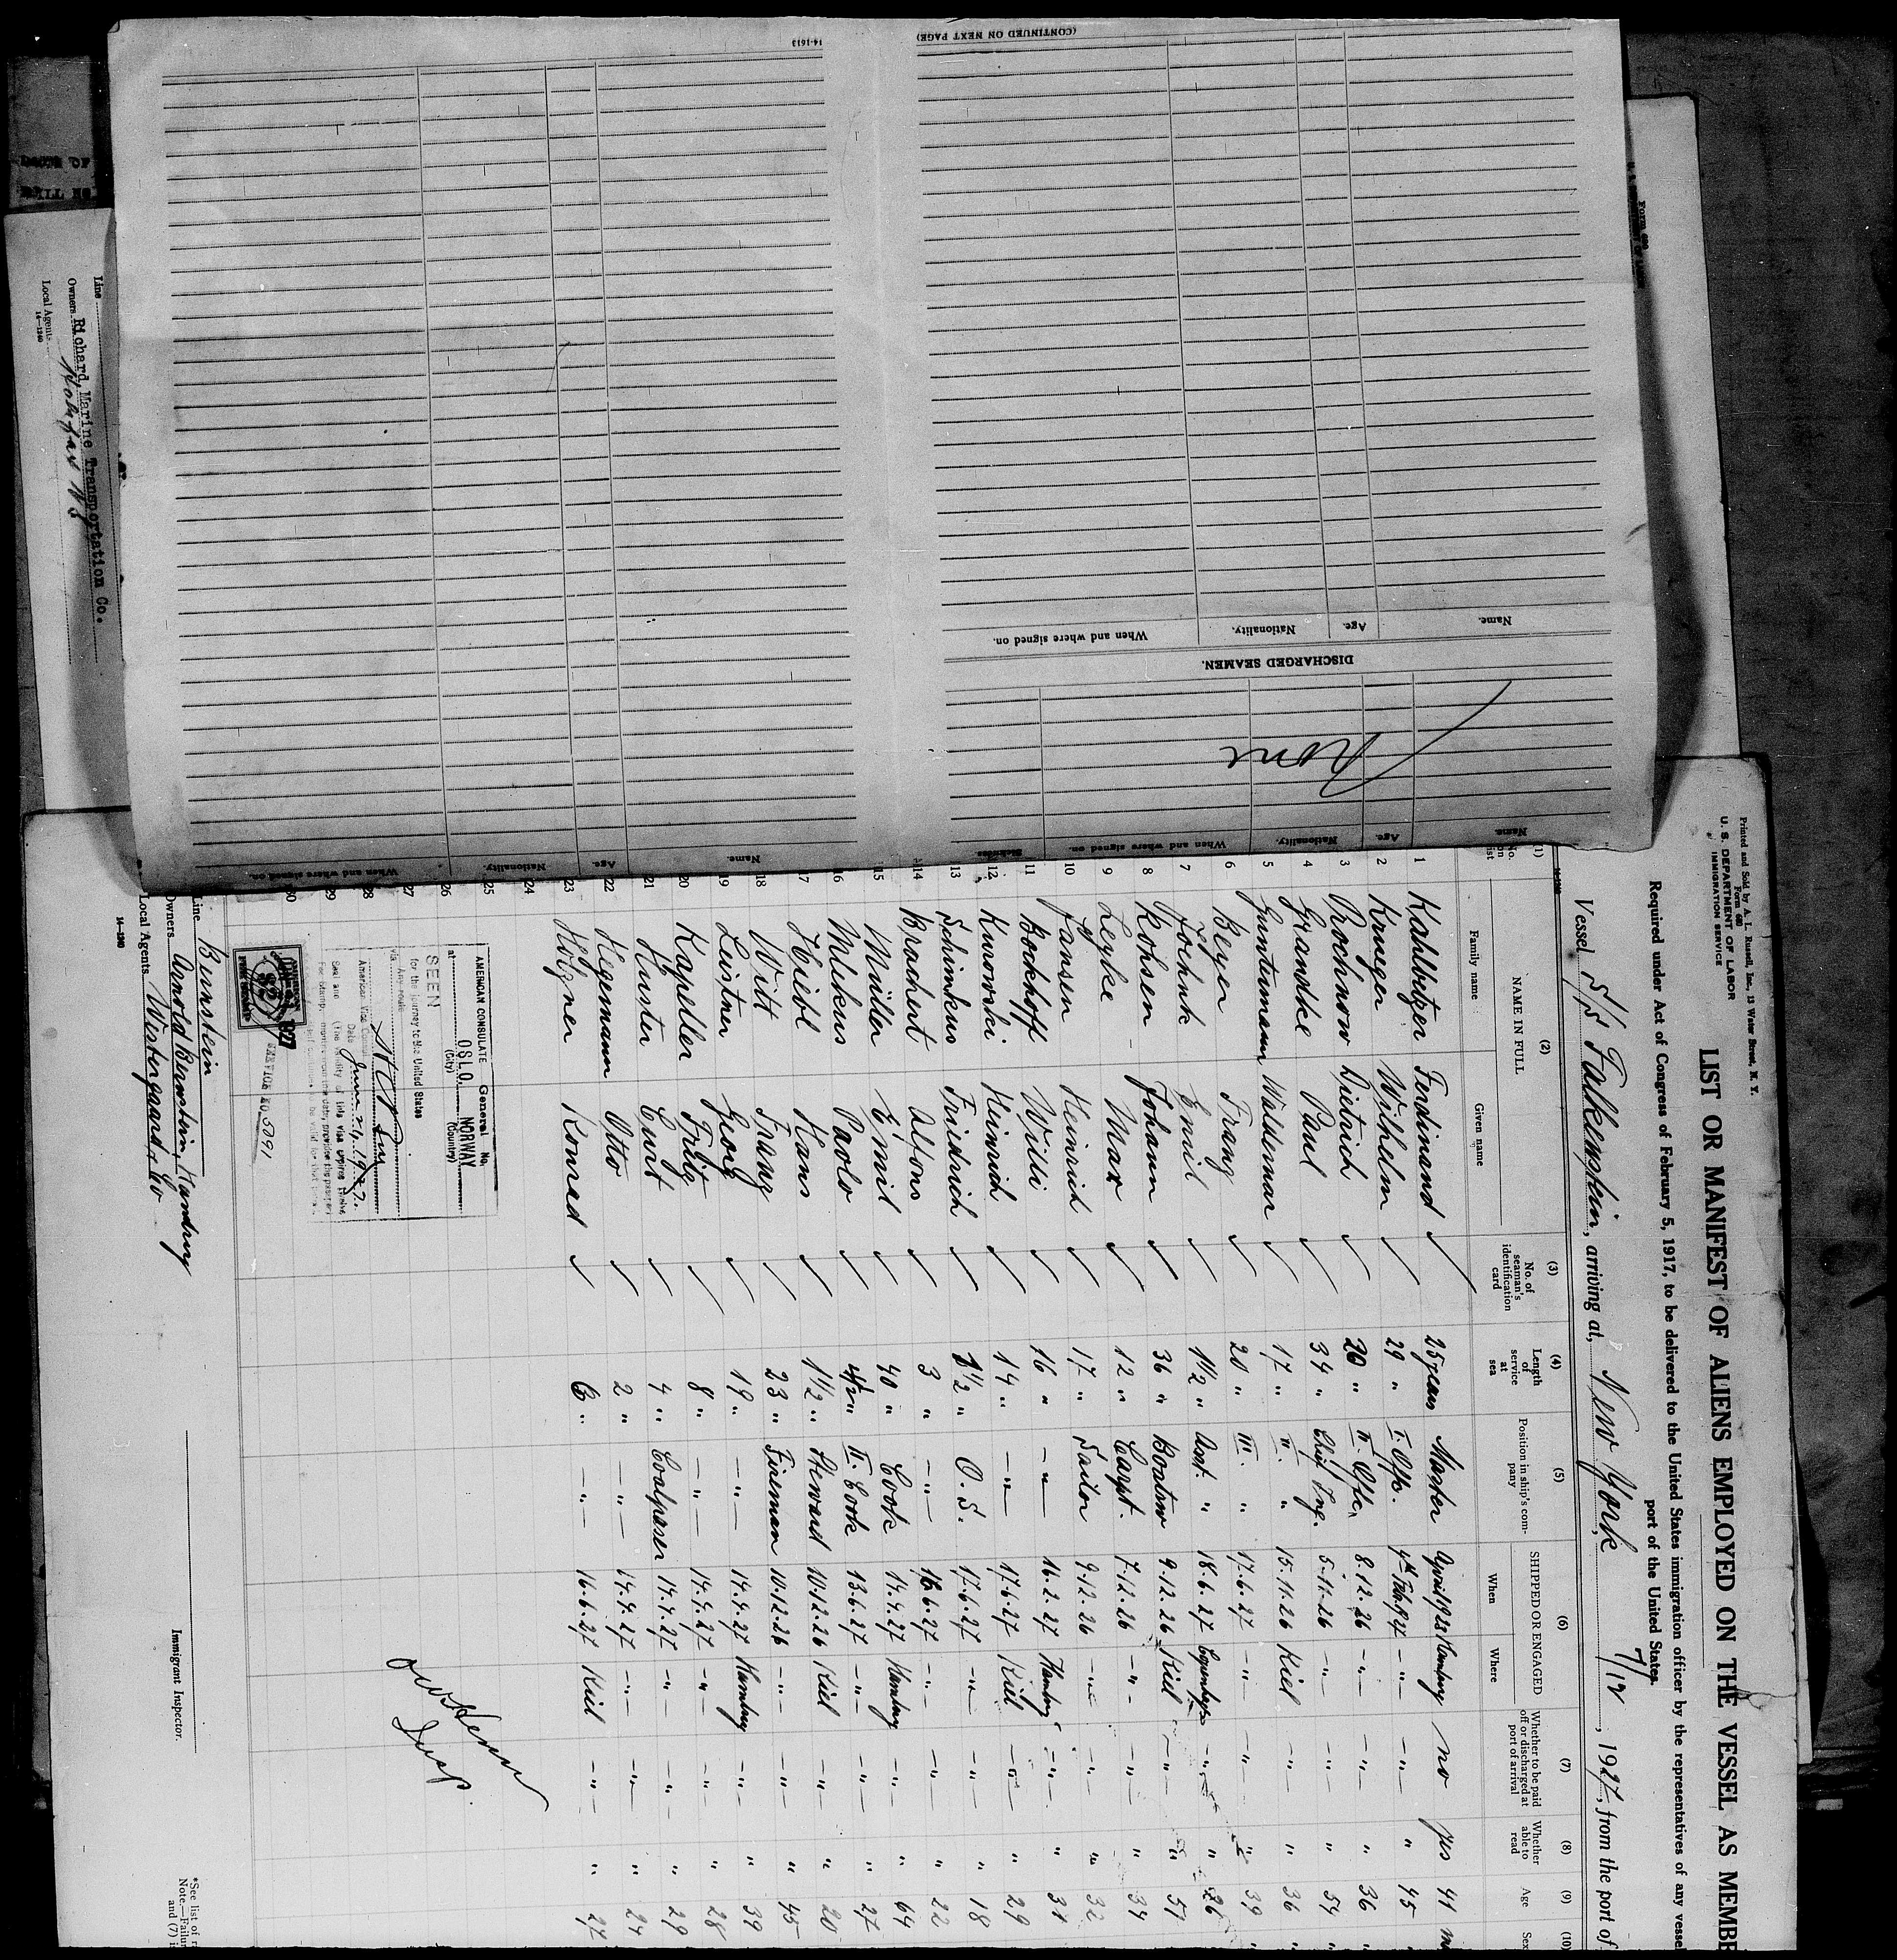 Printed and Sold by A. L. Russell, Inc., 13 Water Street, N. Y.
Form 680
U. S. DEPARTMENT OF LABOR
IMMIGRATION SERVICE
LIST OR MANIFEST OF ALIENS EMPLOYED ON THE VESSEL AS MEMBE
Required under Act of Congress of February 5, 1917, to be delivered to the United States immigration officer by the representatives of any vessel
port of the United States
Vessel S/S Falkenstein, arriving at New York 7/12, 1927, from the port of
(1) (2) (3) (4) (5) (6) (7) (8) (9) (10)
No. on list NAME IN FULL Family name Given name No. of seaman's identification card Length of service at sea Position in ship's company SHIPPED OR ENGAGED When Where Whether to be paid off or discharged at port of arrival Whether able to read Age Sex
1 Kahlbitzer Ferdinand ✓ 25 years Master April 1923 Hamburg no yes 41 m
2 Krueger Wilhelm ✓ 29 " I. Offc. 4th Feb. 1927 -"- -"- " 45
3 Prochnow Dietrich ✓ 20 " II. Offc. 8.12.26 -"- -"- " 36
4 Grandke Paul ✓ 34 " Chief Eng. 5.11.26 -"- -"- " 54
5 Guntermann Waldemar ✓ 17 " II. " 15.11.26 Kiel -"- " 36
6 Beyer Franz ✓ 20 " III. " 17.6.27 -"- -"- " 39
7 Jochnk Emil ✓ 1 1/2 " Asst. " 18.6.27 -"- " 26
8 Rohsen Johann ✓ 36 " Boatsw 9.12.26 Kiel -"- " 51
9 Leyke Max ✓ 12 " Carpt. 7.12.26 -"- -"- " 34
10 Jansen Heinrich ✓ 17 " Sailor 9.12.26 -"- -"- " 32
11 Bockhoff Willi ✓ 16 " -"- 16.2.27 Hamburg -"- " 31
12 Kurowski Heinrich ✓ 14 " -"- 17.6.27 Kiel -"- " 29
13 Schimkus Friedrich ✓ 1 1/2 " O.S. 17.6.27 -"- -"- " 18
14 Brachert Alfons ✓ 3 " -"- 16.6.27 -"- -"- " 22
15 Müller Emil ✓ 40 " Cook 14.4.27 Hamburg -"- " 64
16 Mlekus Paolo ✓ II. Cook 13.6.27 -"- -"- " 27
17 Hiebl Hans ✓ 1 1/2 " Steward 10.12.26 Kiel -"- " 20
18 Witt Franz ✓ 23 " Fireman 10.12.26 -"- -"- " 45
19 Leistner Georg ✓ 19 " -"- 14.4.27 Hamburg -"- " 39
20 Kapedler Fritz ✓ 8 " -"- 14.4.27 -"- -"- " 28
21 Huster Curt ✓ 4 " Coalpasser 14.4.27 -"- -"- " 29
22 Hegemann Otto ✓ 2 " -"- 14.4.27 -"- -"- " 24
23 Holzner Konrad ✓ 6 " -"- 16.6.27 Kiel -"- " 27
24
25
26
27
28
29
30
AMERICAN CONSULATE General No.
at OSLO NORWAY
(City) (Country)
SEEN
for the journey to the United States
via Any route
American Vice Consul
Date June 24, 1927.
SERVICE NO. 5091
Insp.
Line Bernstein
Owners Arnold Bernstein, Hamburg
Local Agents Westergaard & Co
14-1240
Immigrant Inspector.
*See list of r
Note.—Failur
and (7) i
Name. Age. Nationality. When and where signed on. Sickness
None
DISCHARGED SEAMEN.
Name. Age. Nationality. When and where signed on.
(CONTINUED ON NEXT PAGE)
14-1613
Name. Age. Nationality. When and where signed on.
Line
Owners Richard Marine Transportation Co.
Local Agents
14-1240